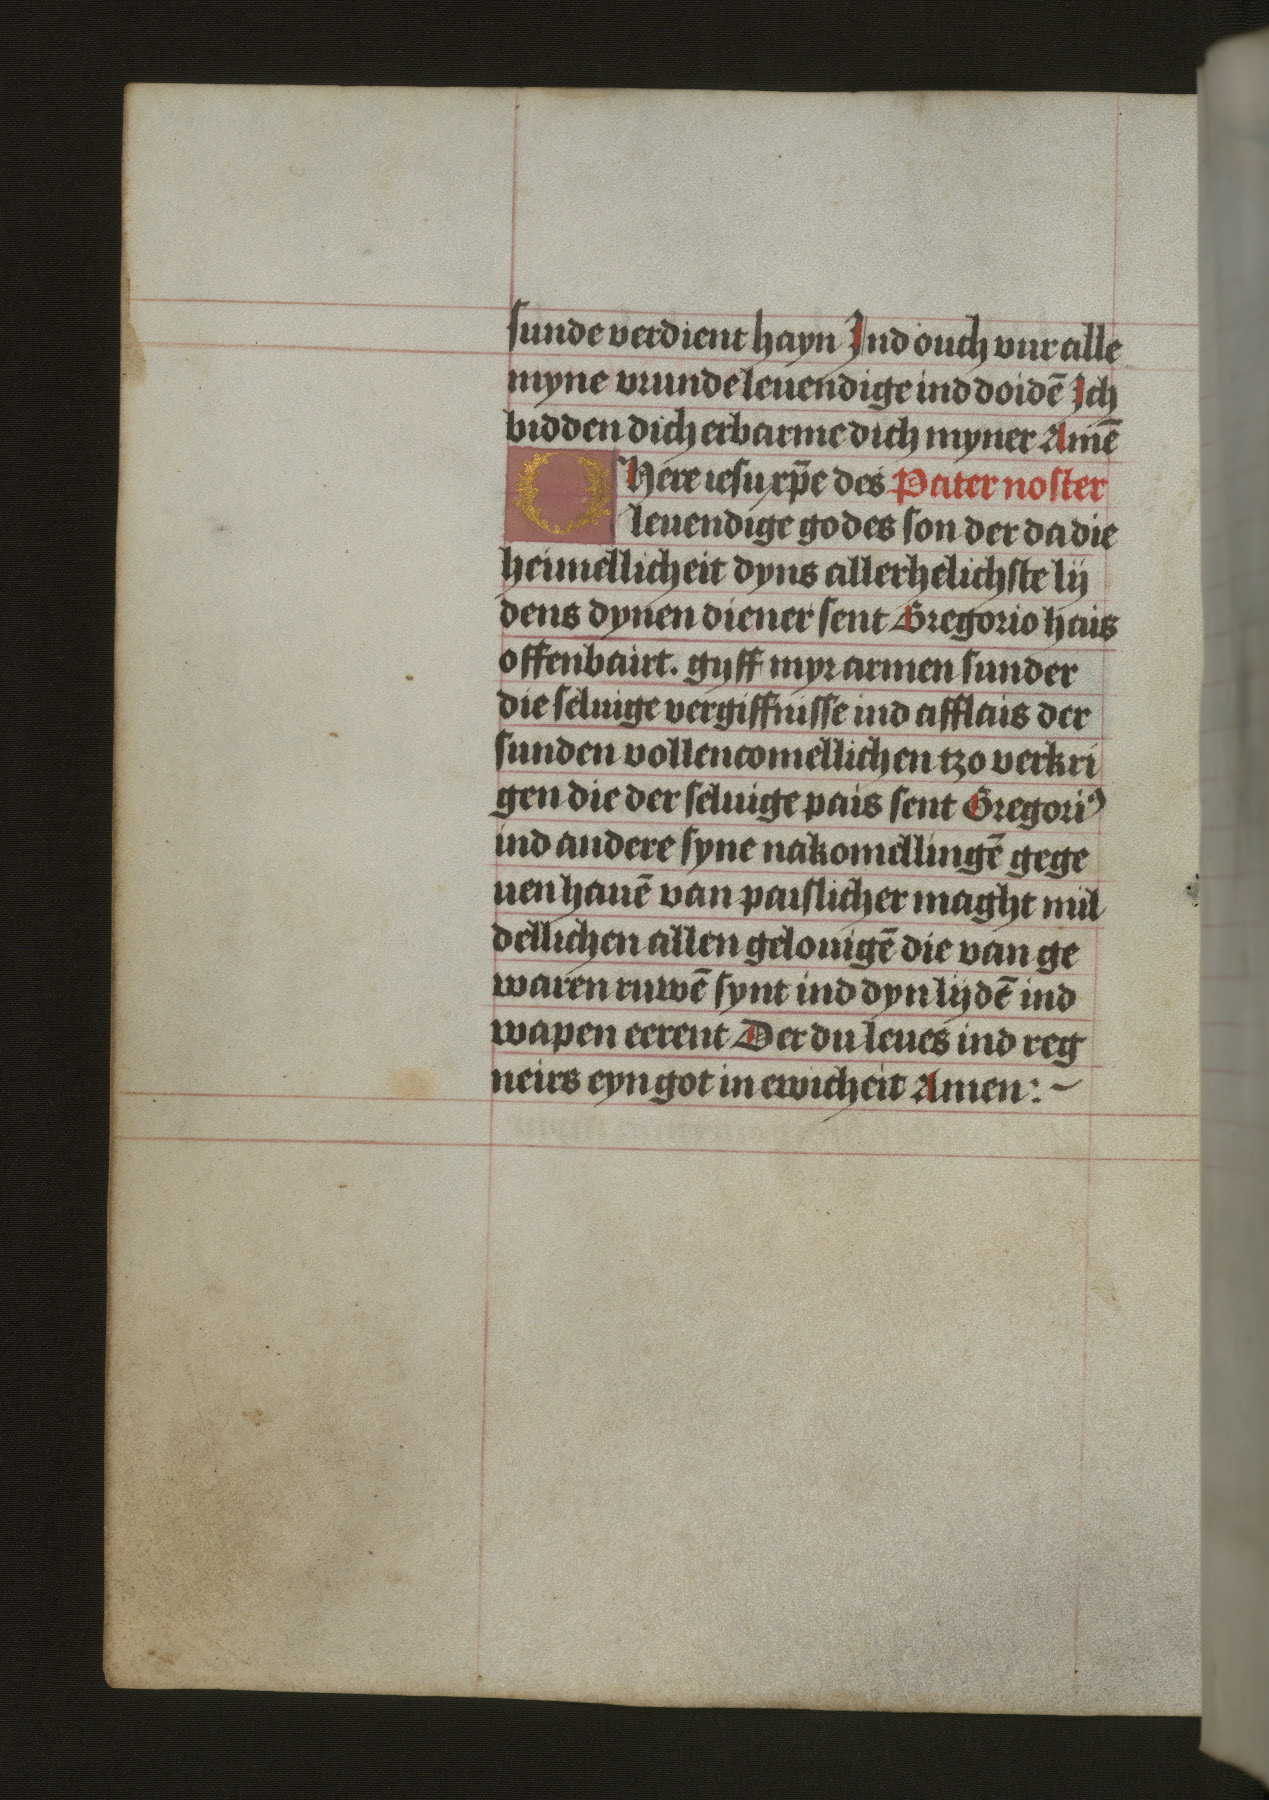 sunde verdient hayn Ind ouch vur alle
myne vrunde leuendige ind doidē Ich
bidden dich erbarme dich myner Amē
O Here iesu xp̄e des Pater noster
leuendige godes son der da die
heimellicheit dyns allerhelichste lij
dens dynen diener sent Gregorio hais
offenbairt. gyff myr armen sunder
die seluige vergiffnisse ind afflais der
sunden vollencomellichen tzo verkri
gen die der seluige pais sent Gregori⁹
ind andere syne nakomellingē gege
uen hauē van paislicher maght mil
dellichen allen gelouigē die van ge
waren ruwē synt ind dyn lijdē ind
wapen eerent Der du leues ind reg
neirs eyn got in ewicheit Amen:~